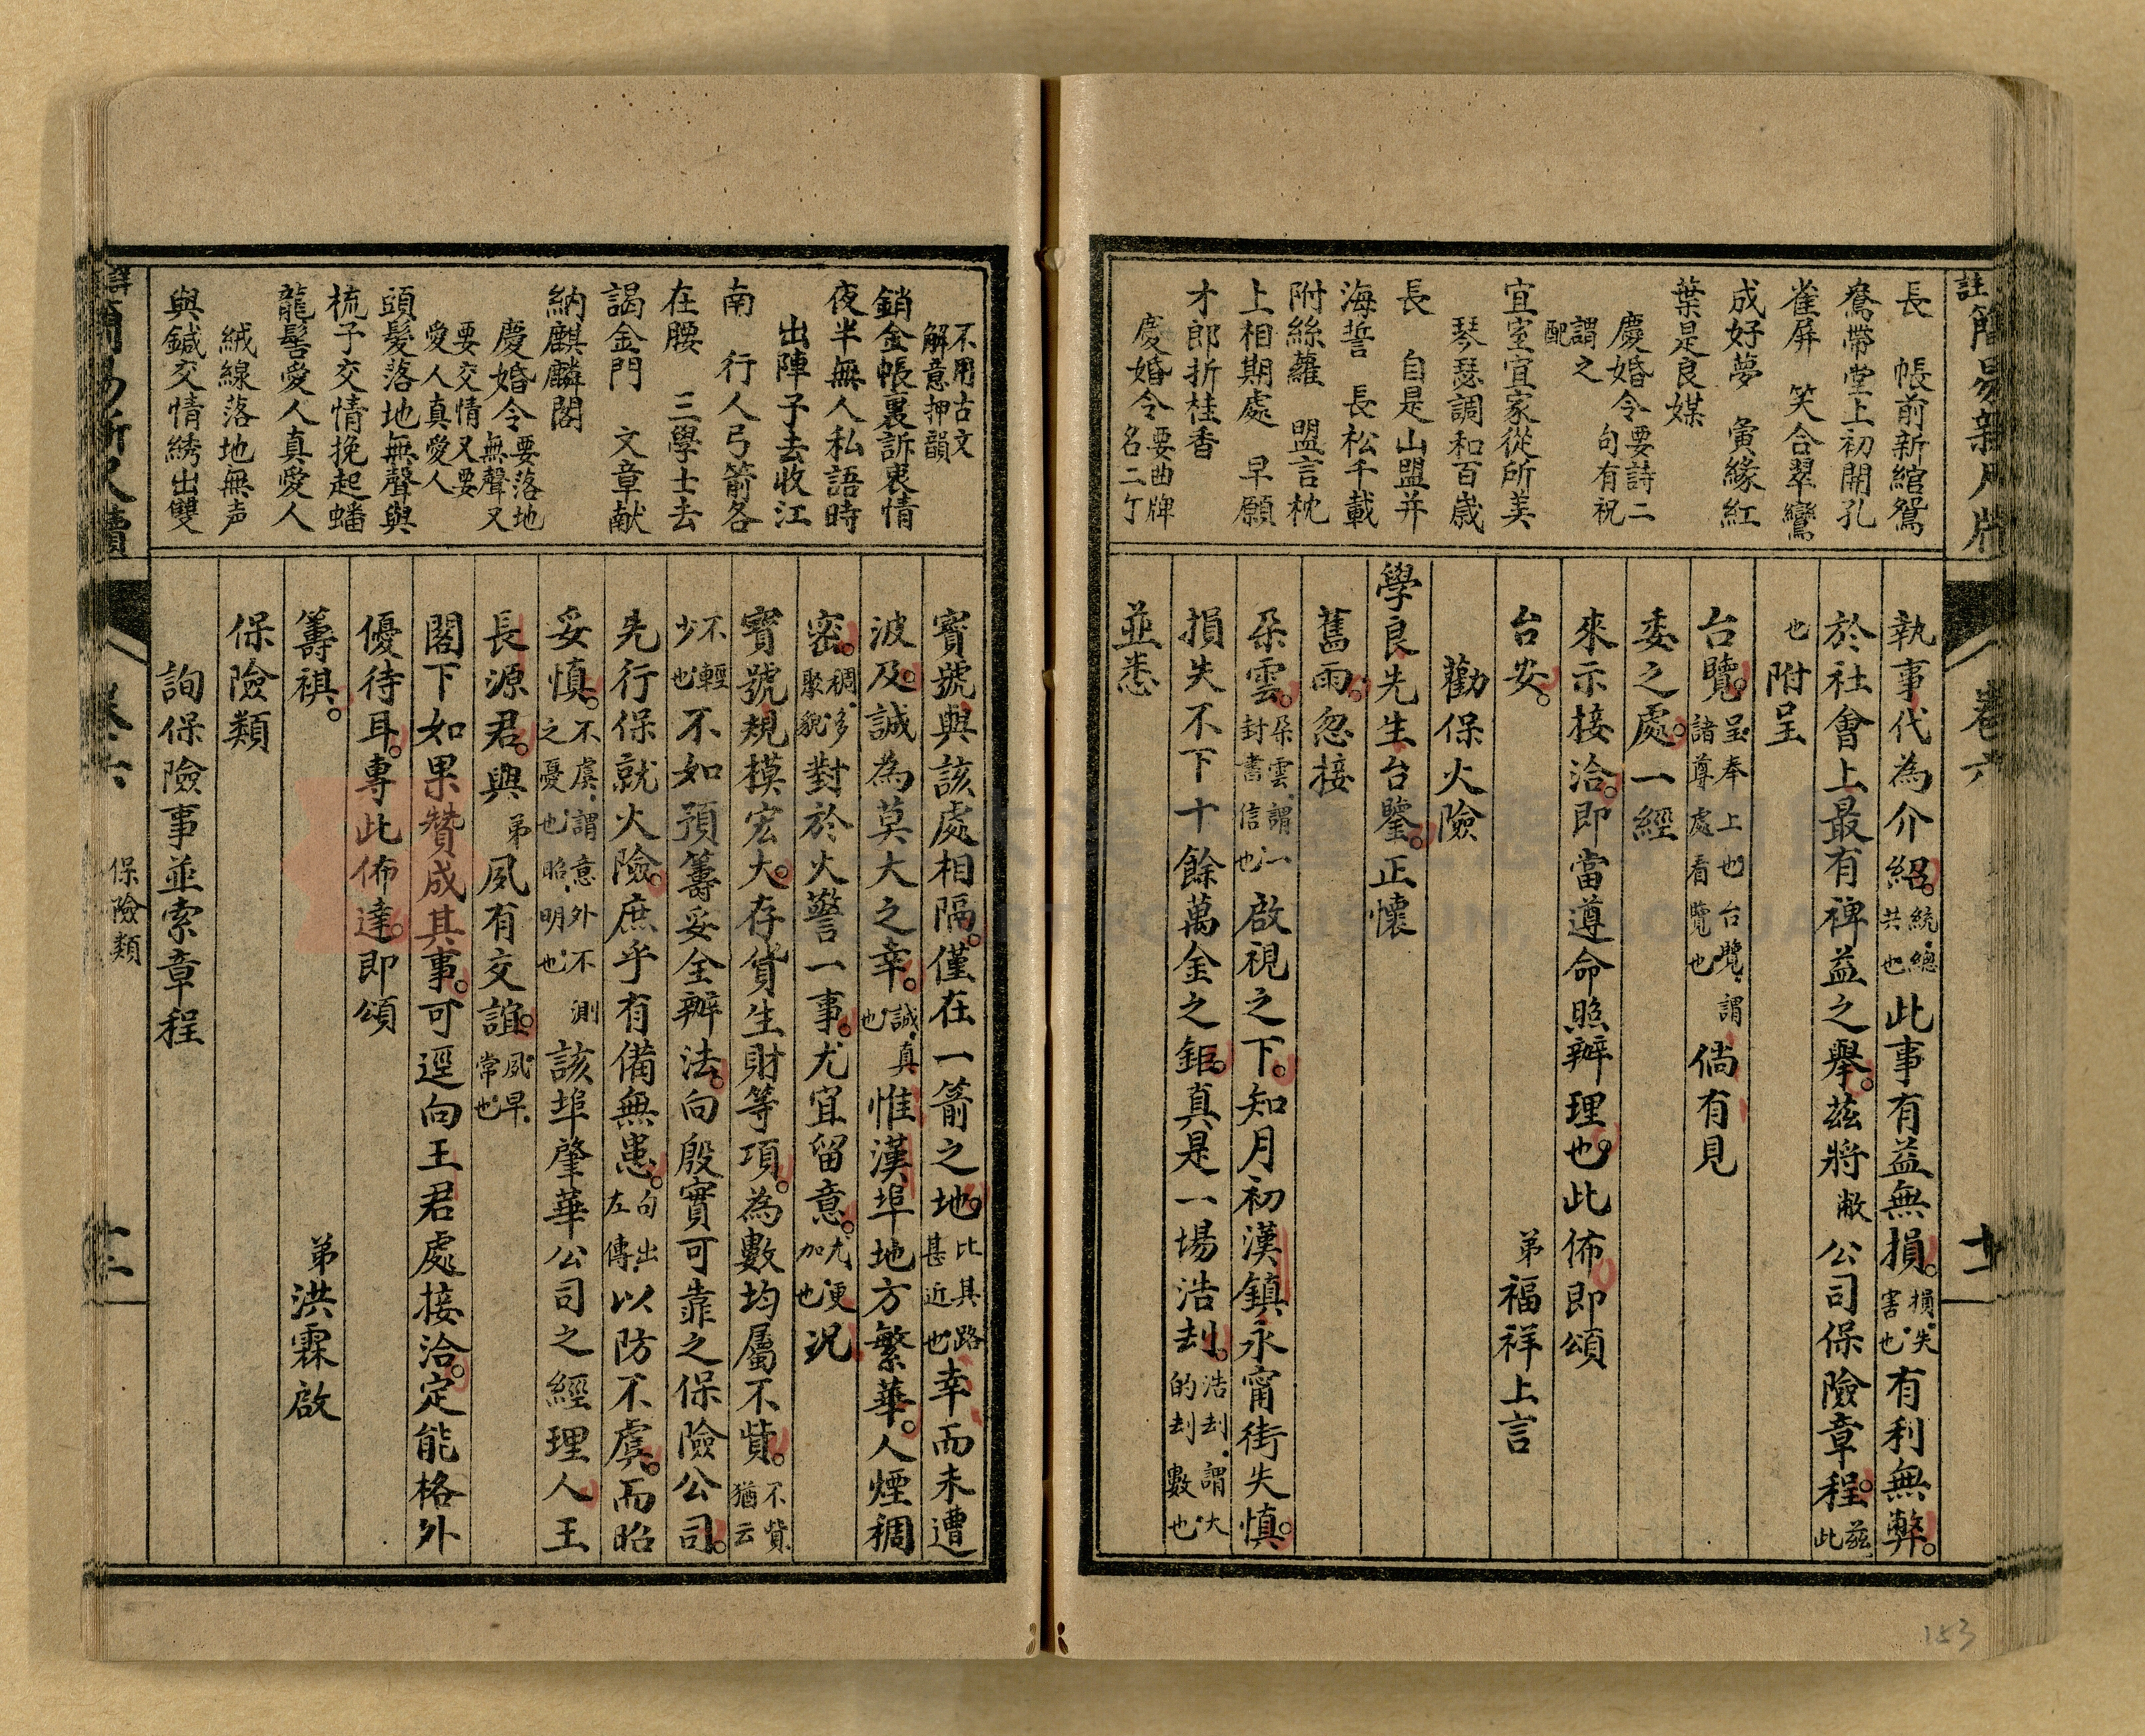 長　帳前新綰鴛
鴦帶堂上初開孔
雀屏　笑合翠鸞
成好夢　寅緣紅
葉是良媒
慶婚令要詩二句有祝
謂之配
宜室宜家從所美
琴瑟調和百歲
長　自是山盟并
海誓　長松千載
附絲蘿　盟言枕
上相期處　早願
才郎折桂香
慶婚令要曲牌名二丁
執事代為介紹。統總共也此事有益無損。損失害也有利無弊。
於社會上最有裨益之舉。茲將敝公司保險章程。茲此
也附呈
台覽。呈奉上也台覽謂諸尊處看覽也倘有見
委之處。一經
來示接洽。即當遵命照辦理也。此佈即頌
台安。
弟福祥上言
勸保火險
學良先生台鑒。正懷
舊雨。忽接
朵雲。朵雲謂一封書信也啟視之下。知月初漢鎮永甯街失慎。
損失不下十餘萬金之鉅。真是一場浩刦。浩刦謂大的刦數也
並悉
卷六
十二
153
不用古文解意押韻
銷金帳裏訴衷情
夜半無人私語時
出陣子去收江
南　行人弓箭各
在腰　三學士去
謁金門　文章献
納麒麟閣
慶婚令要落地無聲又
要交情又要愛人真愛人
頭髮落地無聲與
梳子交情挽起蟠
龍髻愛人真愛人
絨線落地無声
與鍼交情綉出雙
寶號與該處相隔。僅在一箭之地。比其路甚近也幸而未遭
波及。誠為莫大之幸。誠真也惟漢埠地方繁華。人煙稠
密。稠多聚貌對於火警一事。尤宜留意。尤更加也況
寶號規模宏大。存貨生財等項。為數均屬不貲。不貲猶云
不輕少也不如預籌妥全辦法。向殷實可靠之保險公司。
先行保就火險。庶乎有備無患。句出左傳以防不虞。而昭
妥慎。不虞謂意外不測之憂也昭明也該埠肇華公司之經理人王
長源君。與弟夙有交誼。夙早常也
閣下如果贊成其事。可逕向王君處接洽。定能格外
優待耳。專此佈達。即頌
籌祺。
弟洪霖啟
保險類
詢保險事並索章程
保險類